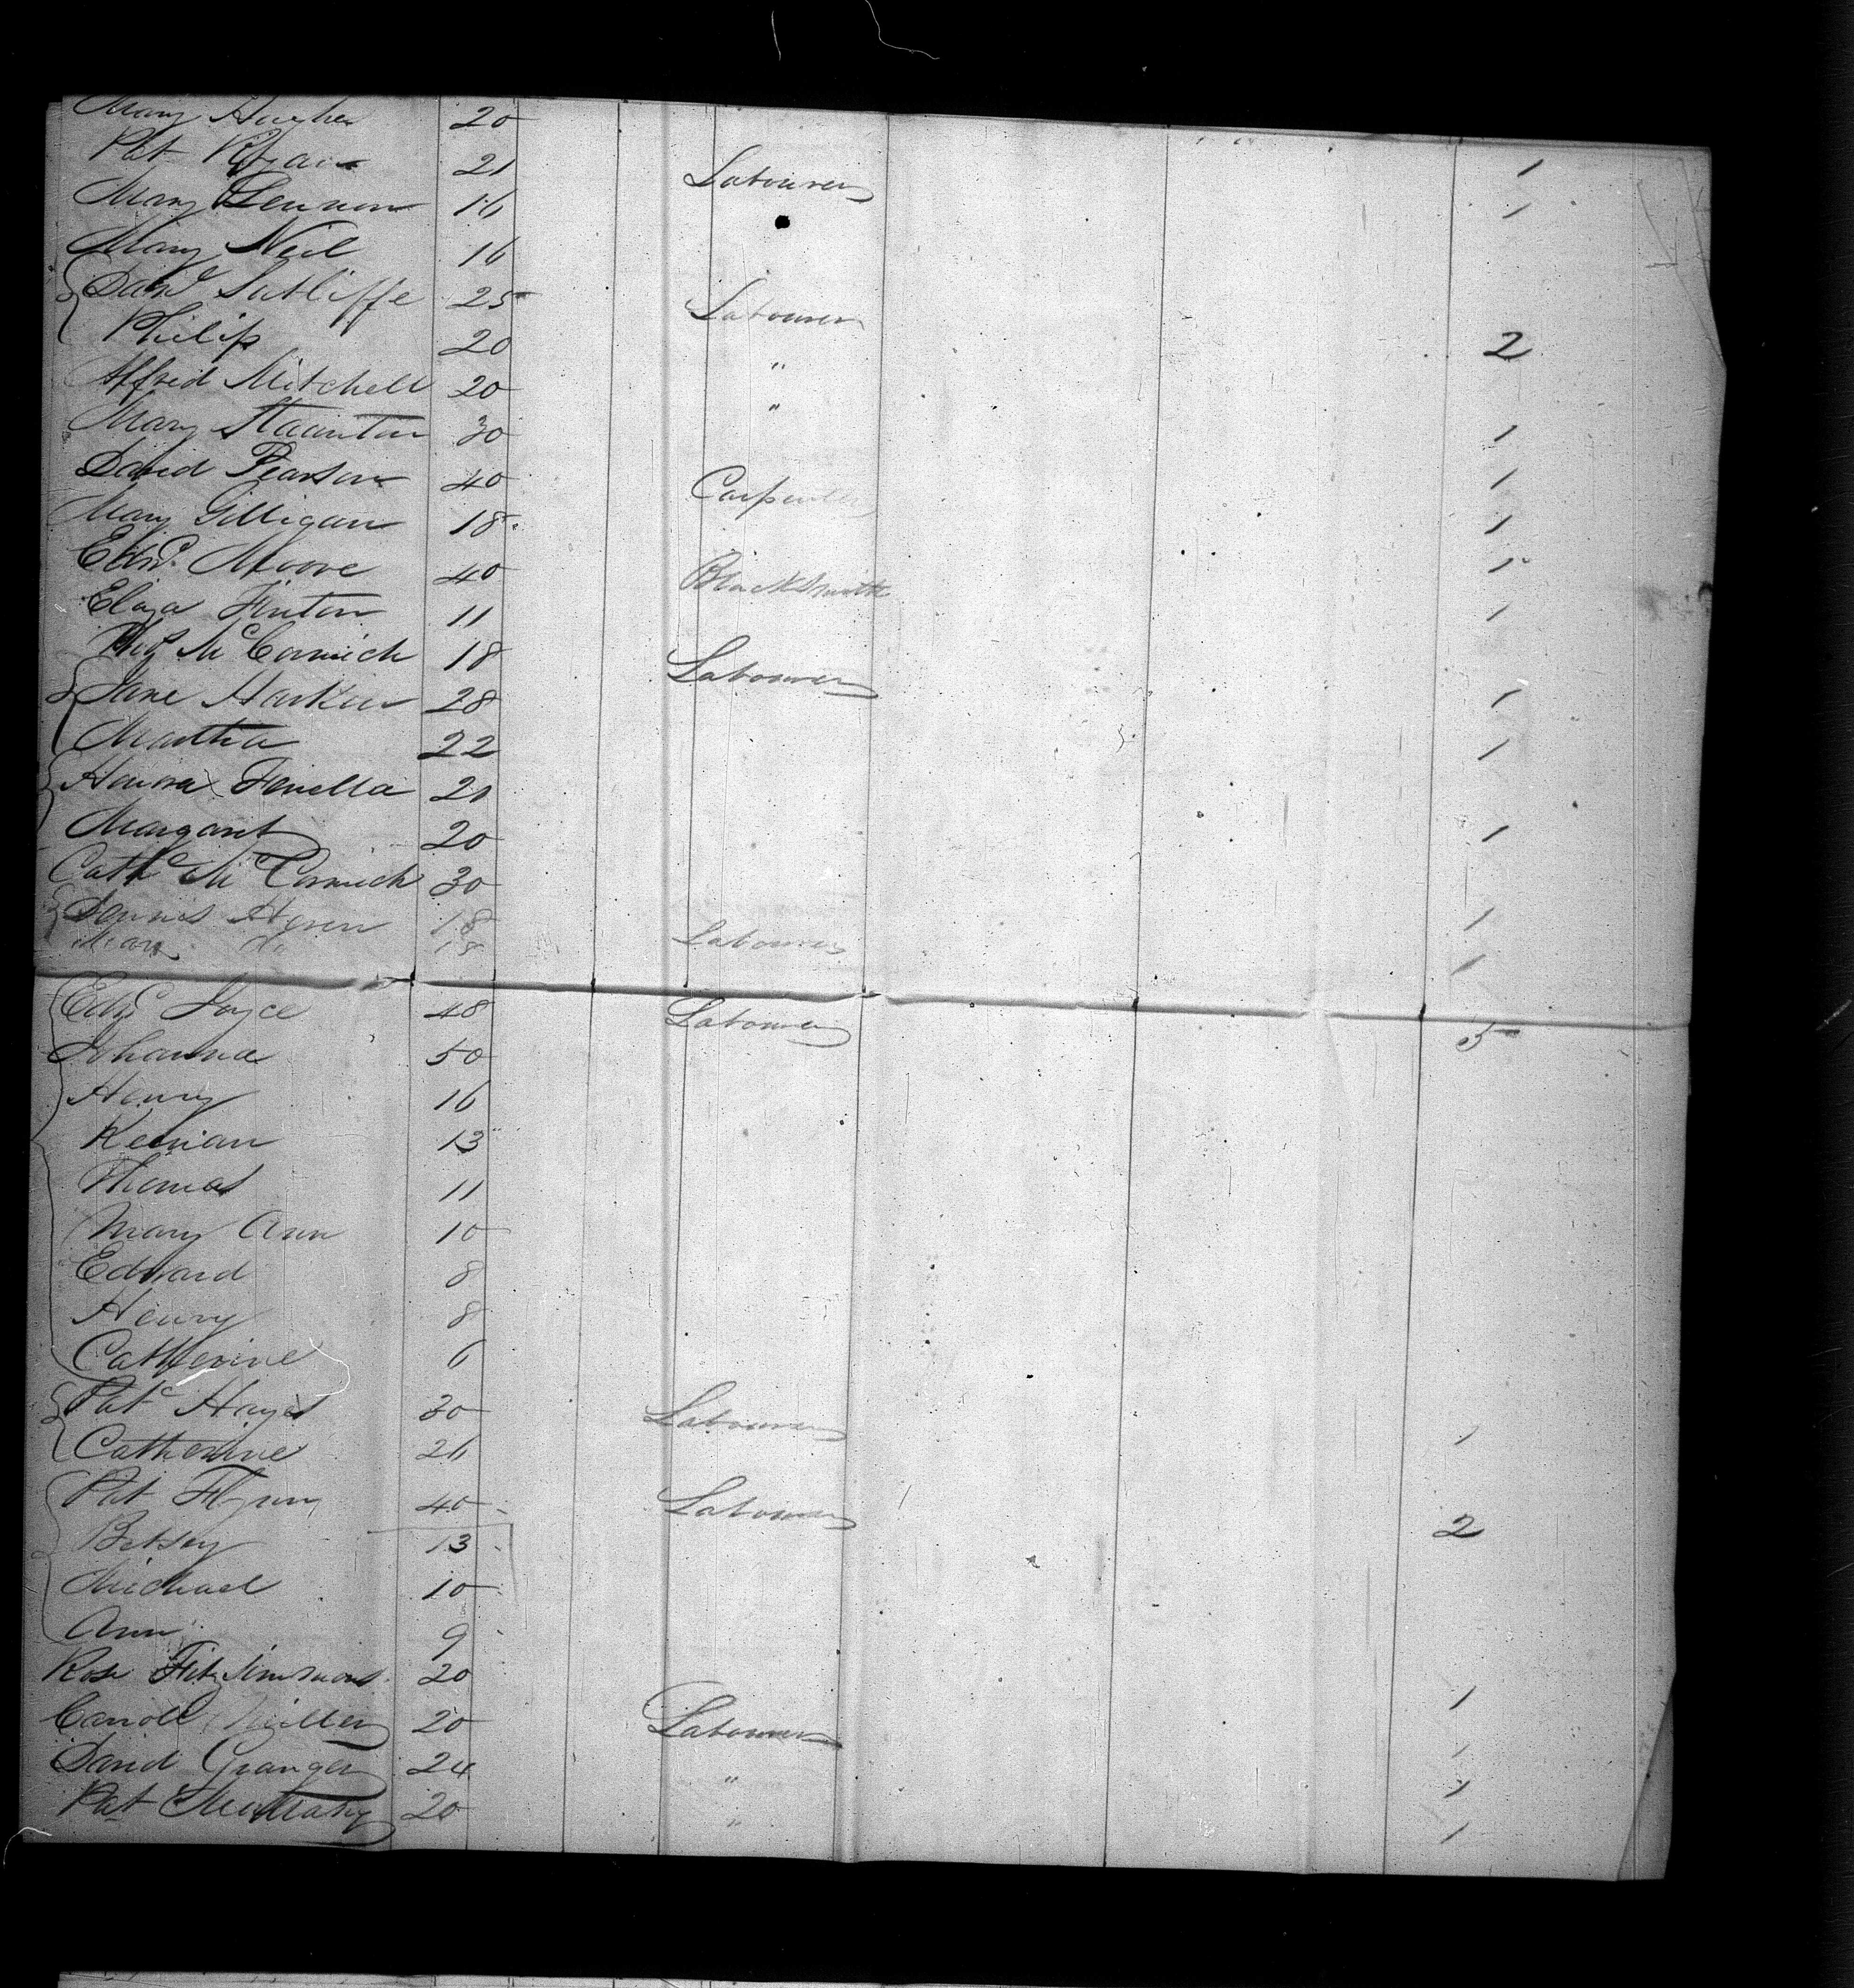 Mary Hughes 20
Pat 21 Labourer 1
Mary Lennon 16 1
Mary Neil 16
Danl Sutliffe 25 Labourer
Philip 20 " 2
Alfred Mitchell 20 "
Mary Staunton 30 1
David Pearson 40 Carpenter 1
Mary Gilligan 18 1
Edwd. Moore 40 Blacksmith 1
Eliza Finton 11 1
McCormick 18 Labourer
Jane Harkin 28 1
Martha 22 1
Honora Finella 20
Margaret 20 1
Cathe McCormick 30
Dennis 18 1
Mary do 18 Labourer 1
Edwd Joyce 48 Labourer 5
Johanna 50
Henry 16
13
Thomas 11
Mary Ann 10
Edward 8
Henry 8
Catherine 6
Patk Hayes 30 Labourer 1
Catherine 26
Pat Flynn 40 Labourer
Betsey 13 2
Michael 10
Ann 9
Rose Fitzsimmons 20 1
Carroll Miller 20 Labourer 1
David Granger 24 " 1
Pat 20 " 1